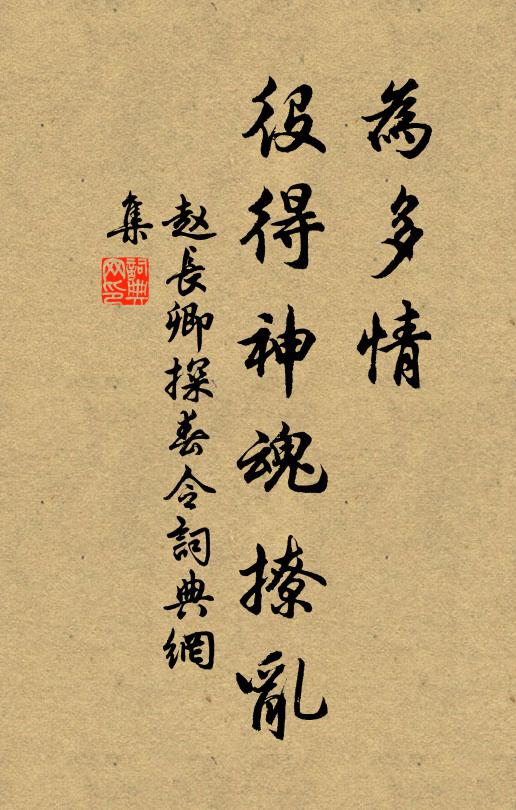 為多情
役得神魂撩亂
赵長卿探春令詞典網
集
詞典
网印